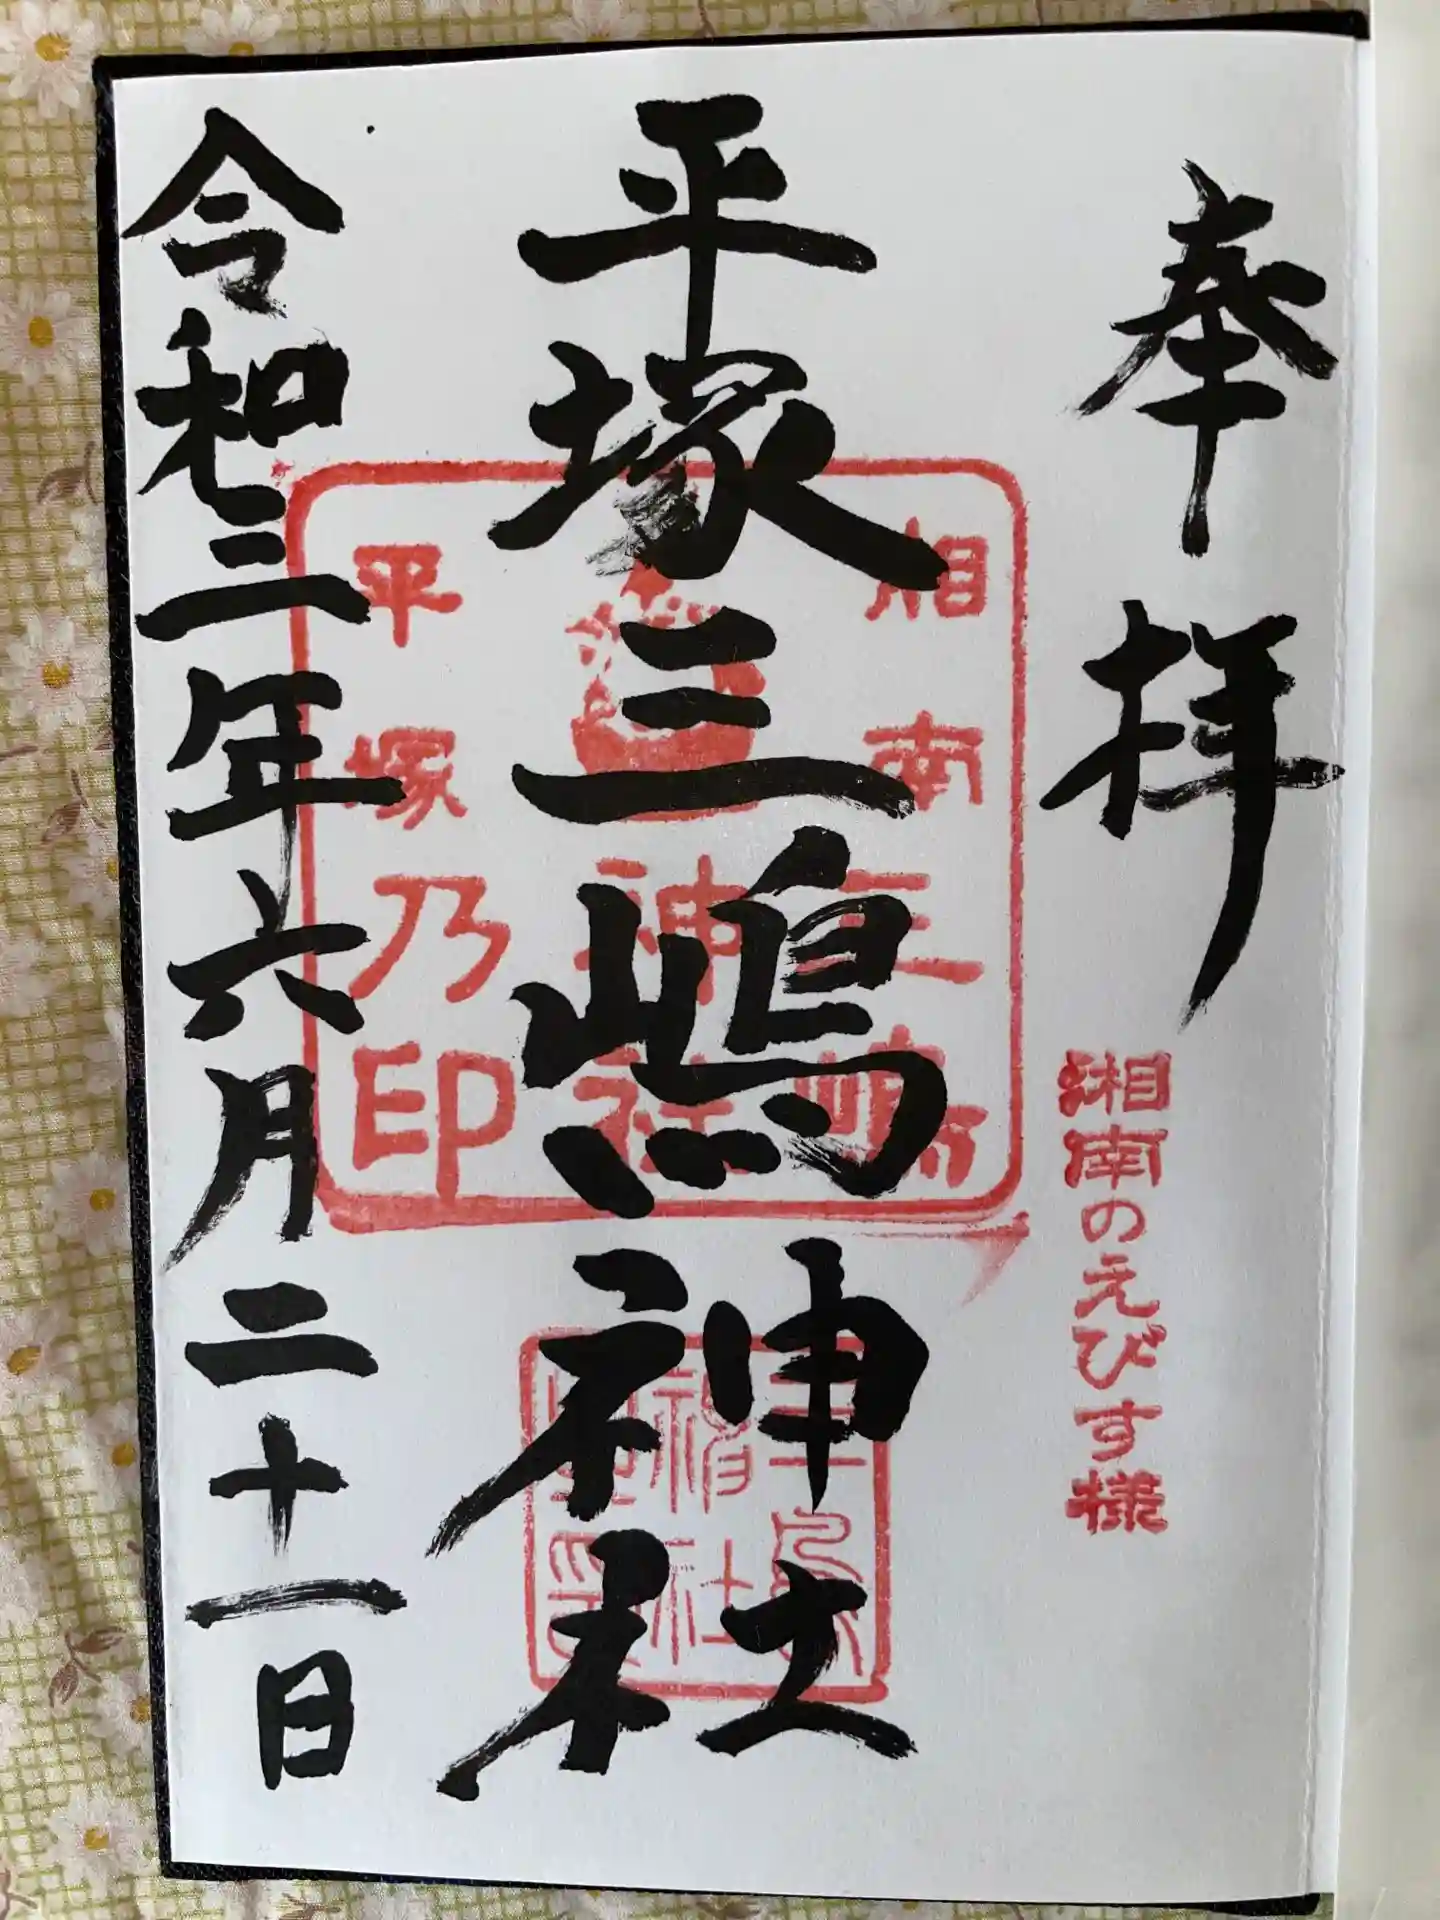 奉拝
湘南のえびす様
平塚三嶋神社
湘南三嶋
神社
平塚乃印
三島
神社
令和三年六月二十一日